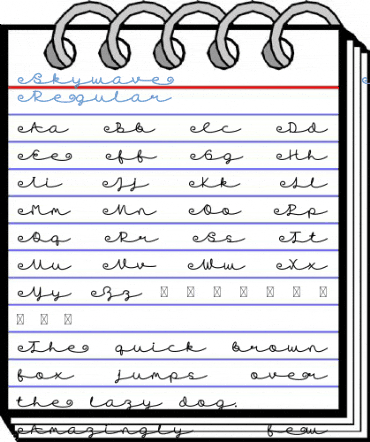 Skywave
Regular
Aa Bb Cc Dd
Ee Ff Gg Hh
Ii Jj Kk Ll
Mm Nn Oo Pp
Qq Rr Ss Tt
Uu Vv Ww Xx
Yy Zz
The quick brown
fox jumps over
the lazy dog.
Amazingly few